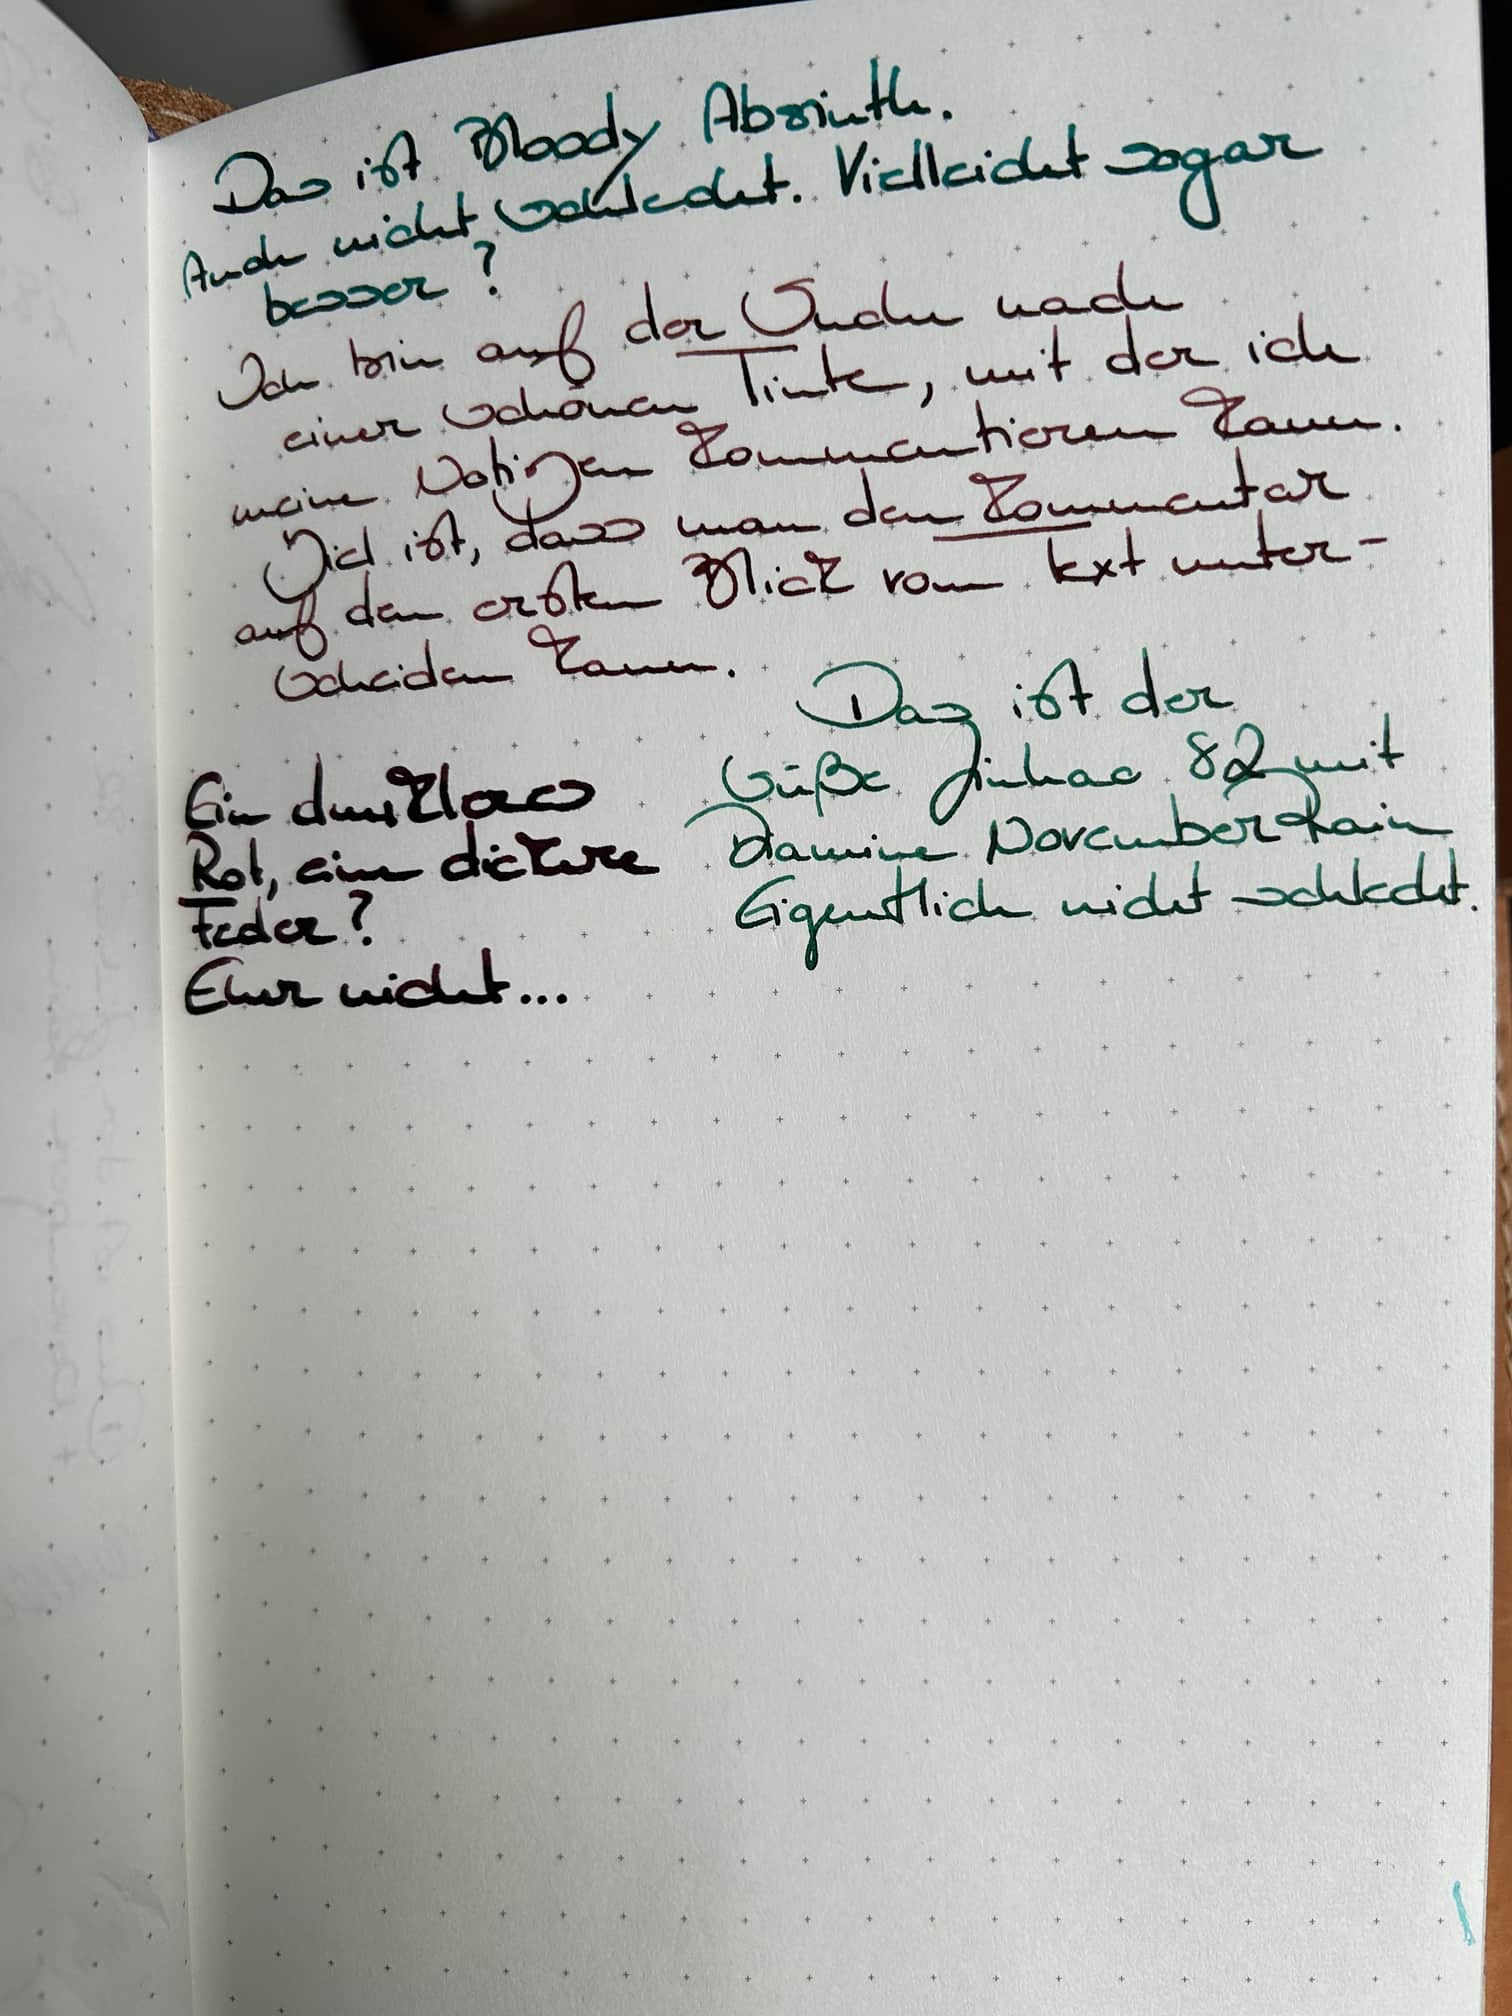 Das ist Bloody Absinth.
Auch nicht schlecht. Vielleicht sogar
besser?
Ich bin auf der Suche nach
einer schönen Tinte, mit der ich
meine Notizen kommentieren kann.
Ziel ist, dass man den Kommentar
auf den ersten Blick vom text unter-
scheiden kann.
Ein dunkleres
Rot, eine dickere
Feder?
Eher nicht...
Das ist der
süße Jinhao 82 mit
Diamine November Rain
Eigentlich nicht schlecht.